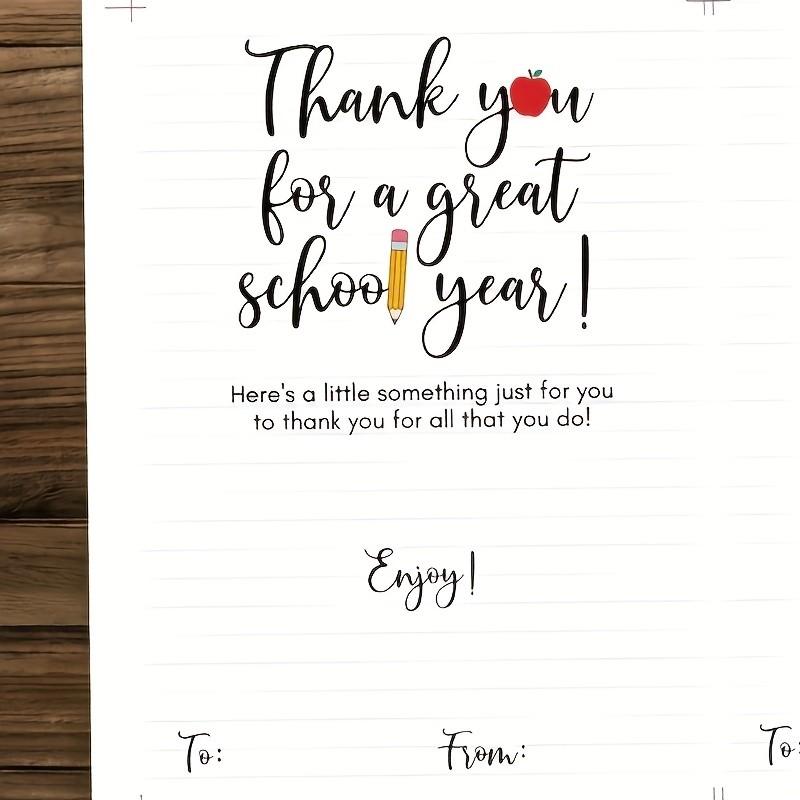 Thank you
for a great
school year!
Here's a little something just for you
to thank you for all that you do!
Enjoy!
To: From: To: